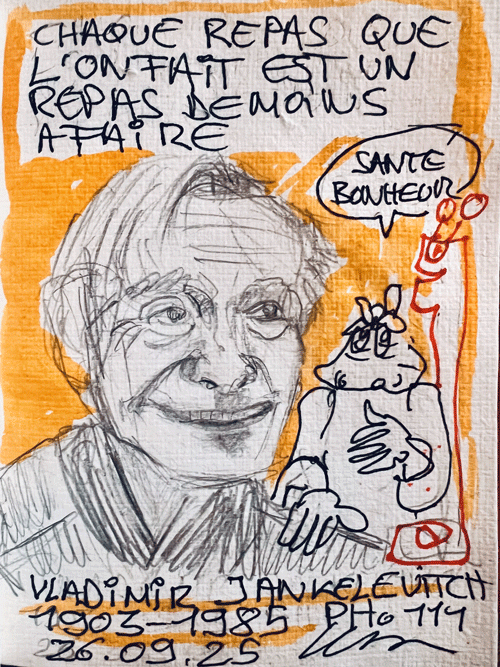 CHAQUE REPAS QUE
L'ON FAIT EST UN
REPAS DE MOINS
A FAIRE
SANTE
BONHEUR
VLADIMIR JANKELEVITCH
1903-1985 PHo 114
26.09.25